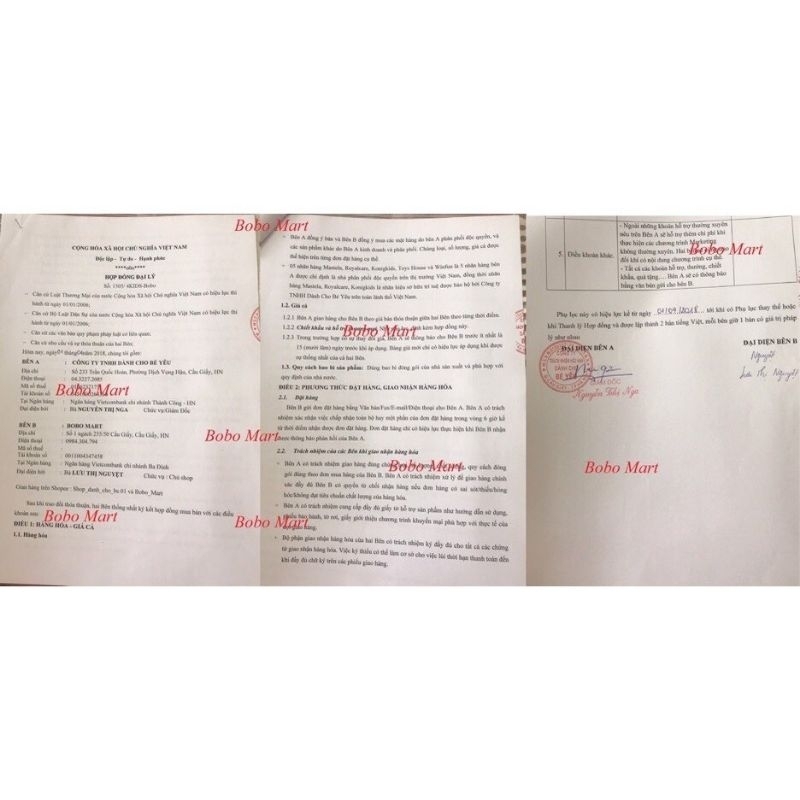 Bobo Mart
CỘNG HÒA XÃ HỘI CHỦ NGHĨA VIỆT NAM
Độc lập - Tự do - Hạnh phúc
HỢP ĐỒNG ĐẠI LÝ
Số: 1505/ HKDS-Bobo
- Căn cứ Luật Thương Mại của nước Cộng Hòa Xã Hội Chủ Nghĩa Việt Nam có hiệu lực thi
hành từ ngày 01/01/2006;
- Căn cứ Bộ Luật Dân Sự của nước Cộng Hòa Xã Hội Chủ Nghĩa Việt Nam có hiệu lực thi
hành từ ngày 01/01/2006;
- Căn cứ các văn bản quy phạm pháp luật có liên quan;
- Căn cứ nhu cầu và sự thỏa thuận của hai bên.
Hôm nay, ngày 04 tháng 04 năm 2018, chúng tôi gồm:
BÊN A : CÔNG TY TNHH DÀNH CHO BÉ YÊU
Địa chỉ : Số 233 Trần Quốc Hoàn, Phường Dịch Vọng Hậu, Cầu Giấy, HN
Điện thoại : 04.3227.2685
Mã số thuế
Bobo Mart
Tài khoản số
Tại Ngân hàng : Ngân hàng Vietcombank chi nhánh Thành Công - HN
Đại diện bởi : Bà NGUYỄN THỊ NGA Chức vụ: Giám Đốc
BÊN B : BOBO MART
Địa chỉ : Số 1 ngách 255/50 Cầu Giấy, Cầu Giấy, HN
Bobo Mart
Điện thoại : 0984.304.794
Mã số thuế :
Tài khoản số : 0011004347458
Tại Ngân hàng : Ngân hàng Vietcombank chi nhánh Ba Đình
Đại diện bởi : Bà LƯU THỊ NGUYỆT Chức vụ : Chủ shop
Gian hàng trên Shopee : Shop_danh_cho_be.01 và Bobo_Mart
Sau khi trao đổi thỏa thuận, hai Bên thống nhất ký kết hợp đồng mua bán với các điều
khoản sau:
Bobo Mart
ĐIỀU 1: HÀNG HÓA - GIÁ CẢ
1.1. Hàng hóa
- Bên A đồng ý bán và Bên B đồng ý mua các mặt hàng do bên A phân phối độc quyền, và
các sản phẩm khác do Bên A kinh doanh và phân phối. Chủng loại, số lượng, giá cả được
thể hiện trên từng đơn đặt hàng cụ thể.
- 05 nhãn hàng Mastela, Royalcare, Konigkids, Toys House và Winfun là 5 nhãn hàng bên
A được chỉ định là nhà phân phối độc quyền trên thị trường Việt Nam, đồng thời nhãn
hàng Mastela, Royalcare, Konigkids là nhãn hiệu sở hữu trí tuệ được bảo hộ bởi Công ty
TNHH Dành Cho Bé Yêu trên toàn lãnh thổ Việt Nam.
1.2. Giá cả
1.2.1 Bên A giao hàng cho Bên B theo giá bán thỏa thuận giữa hai Bên theo từng thời điểm.
1.2.2 Chiết khấu và hỗ trợ kèm theo hợp đồng này.
Bobo Mart
1.2.3 Trong trường hợp có sự thay đổi giá, Bên A sẽ thông báo cho Bên B trước ít nhất là
15 (mười lăm) ngày trước khi áp dụng. Bảng giá mới chỉ có hiệu lực áp dụng khi được
sự thống nhất của cả hai Bên.
1.3. Quy cách bao bì sản phẩm: Dùng bao bì đóng gói của nhà sản xuất và phù hợp với
quy định của nhà nước.
ĐIỀU 2: PHƯƠNG THỨC ĐẶT HÀNG, GIAO NHẬN HÀNG HÓA
2.1. Đặt hàng
Bên B gửi đơn đặt hàng bằng Văn bản/Fax/E-mail/Điện thoại cho Bên A. Bên A có trách
nhiệm xác nhận việc chấp nhận toàn bộ hay một phần của đơn đặt hàng trong vòng 6 giờ kể
từ thời điểm nhận được đơn đặt hàng. Đơn đặt hàng chỉ có hiệu lực thực hiện khi Bên B nhận
được thông báo phản hồi của Bên A.
2.2. Trách nhiệm của các Bên khi giao nhận hàng hóa
Bobo Mart
- Bên A có trách nhiệm giao hàng đúng chủng loại, số lượng, chất lượng, quy cách đóng
gói đúng theo đơn mua hàng của Bên B. Bên A có trách nhiệm xử lý để giao hàng chính
xác đầy đủ Bên B có quyền từ chối nhận hàng nếu đơn hàng có sai sót/thiếu/hỏng
hóc/không đạt tiêu chuẩn chất lượng của hàng hóa.
- Bên A có trách nhiệm cung cấp đầy đủ giấy tờ hỗ trợ sản phẩm như hướng dẫn sử dụng,
phiếu bảo hành, tờ rơi, giấy giới thiệu chương trình khuyến mại phù hợp với thực tế của
Bobo Mart
đơn giao hàng.
- Bộ phận giao nhận hàng của hai Bên có trách nhiệm ký đầy đủ cho tất cả các chứng
từ giao nhận hàng hóa. Việc ký thiếu có thể làm cơ sở cho việc lùi thời hạn thanh toán đến
khi đầy đủ chữ ký trên các phiếu giao hàng.
5. Điều khoản khác.
- Ngoài những khoản hỗ trợ thường xuyên
nêu trên Bên A sẽ hỗ trợ thêm chi phí khi
thực hiện các chương trình Marketing
không thường xuyên. Hai bên
Bobo Mart
đổi khi có nội dung chương trình cụ thể.
- Tất cả các khoản hỗ trợ, thưởng, chiết
khấu, quà tặng.... Bên A sẽ có thông báo
bằng văn bản gửi cho bên B.
Phụ lục này có hiệu lực kể từ ngày 04/04/2018 tới khi có Phụ lục thay thế hoặc
khi Thanh lý Hợp đồng và được lập thành 2 bản tiếng Việt, mỗi bên giữ 1 bản có giá trị pháp
lý như nhau
ĐẠI DIỆN BÊN A
ĐẠI DIỆN BÊN B
CÔNG TY
DÀNH CHO
BÉ YÊU
GIÁM ĐỐC
Nguyễn Thị Nga
Nguyệt
Lưu Thị Nguyệt
Bobo Mart